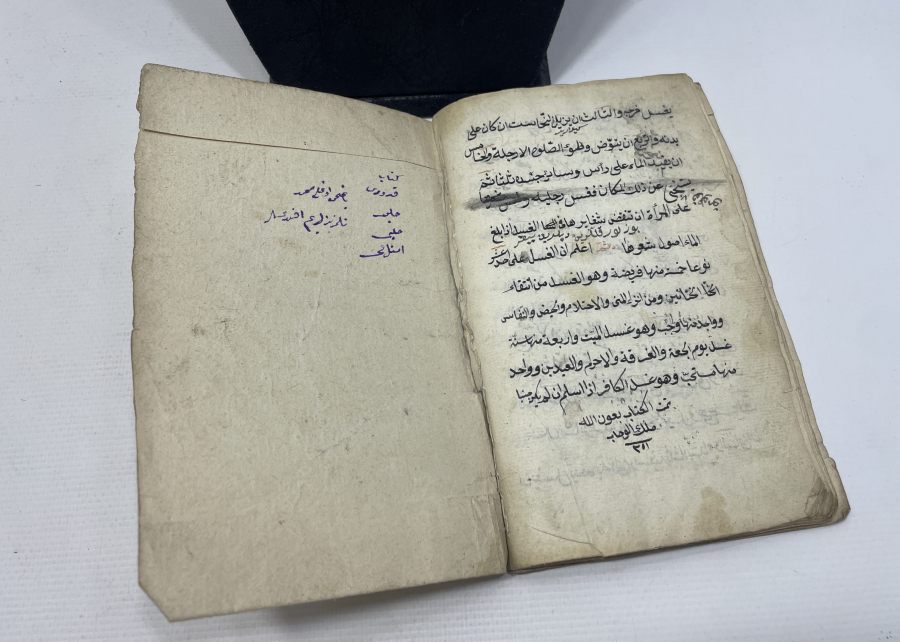 يغسل فرجه والثالث ان يزيل النجاست ان كان على
بدنه والرابع ان يتوض وضوء الصلوة الا رجله والخامس
ان يفيد الماء على رأس وسائر جسده ثلثا ثم
يتنحى عن ذلك المكان فغسل رجليه وليس
على المرأة ان تنقض ضفايرها في الغسل اذا بلغ
الماء اصول شعرها اعلم ان الغسل على احد عشر
نوعا خمسة منها فريضة وهو الغسل من التقاء
الختانين ومن انزال المنى والاحتلام والحيض والنفاس
وواحد منها واجب وهو غسل الميت واربعة منها سنة
غسل يوم الجمعة والعرفة والاحرام والعيدين وواحد
منها مستحب وهو غسل الكافر اذا اسلم ان لم يكن جنبا
تمت الكتاب بعون الله
ملك الوهاب
كتاب
قدورى
حلبى
حلبى